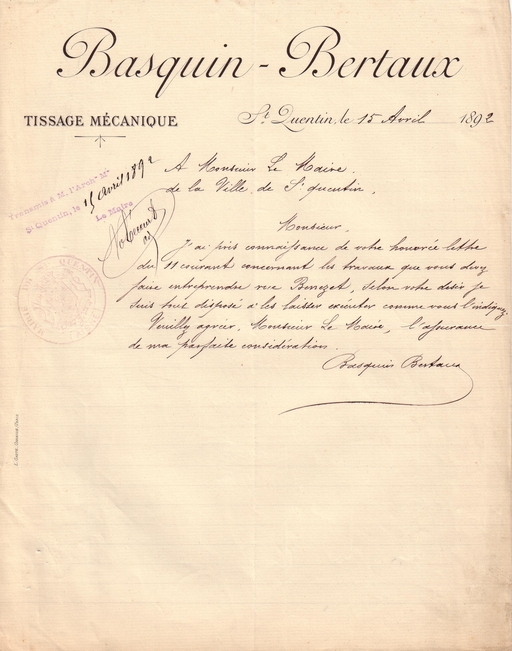 Basquin - Bertaux
TISSAGE MÉCANIQUE
St Quentin, le 15 Avril 1892
Transmis à M. l'Archte Mal
St Quentin, le 15 avril 1892
Le Maire
A Monsieur Le Maire.
de la Ville de St quentin,
Monsieur.
J'ai pris connaissance de votre honorée lettre
du 11 courant concernant les travaux que vous devez
faire entreprendre rue Benezet, selon votre désir je
suis tout disposé à les laisser exécuter comme vous l'indiquez.
Veuillez agréer, Monsieur Le Maire, l'assurance
de ma parfaite considération.
Basquin Bertaux